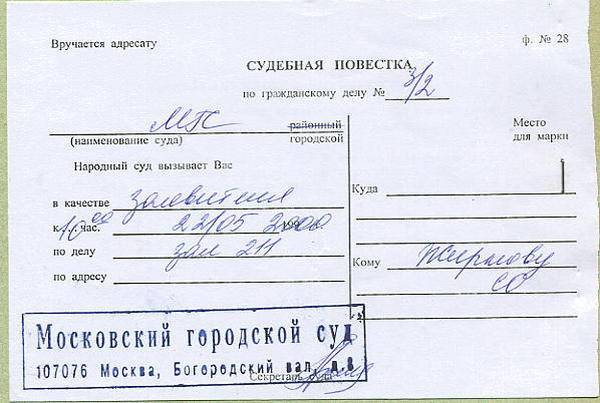 Вручается адресату
ф. № 28
СУДЕБНАЯ ПОВЕСТКА
по гражданскому делу № 3/2
МГС районный
(наименование суда) городской
Народный суд вызывает Вас
в качестве заявителя
к 10 00 час. 22/05 2000
по делу зал 211
по адресу
Место
для марки
Куда
Кому Жирмову
СО
Московский городской суд
107076 Москва, Богородский вал, д.8
Секретарь суда